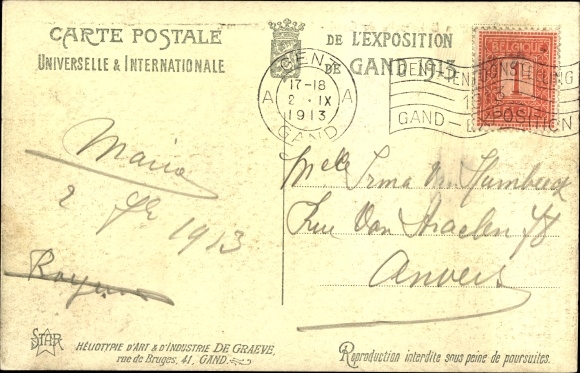 CARTE POSTALE
UNIVERSELLE & INTERNATIONALE
DE L'EXPOSITION
DE GAND 1913
GENT
17-18
A 2 · IX A
1913
GAND
BELGIQUE
1
GAND-EXPOSITION
Maria
2 1913
Melle Irma Van
Rue Van 78
Anvers
STAR
HÉLIOTYPIE D'ART & D'INDUSTRIE DE GRAEVE,
rue de Bruges, 41, GAND.
Reproduction interdite sous peine de poursuites.